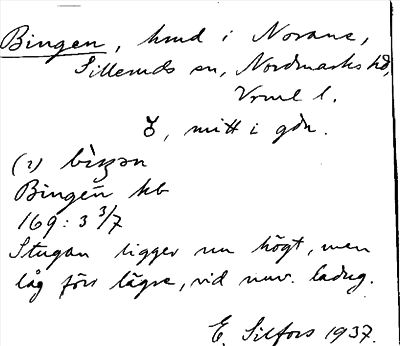 Bingen, hmd i Norane,
Silleruds sn, Nordmarks hd,
Vrml l.
mitt i gdn.
(2)
Bingen kb
169: 3 3/7
Stugan ligger nu högt, men
låg förr lägre, vid nuv. ladug.
E. Silfors 1937.